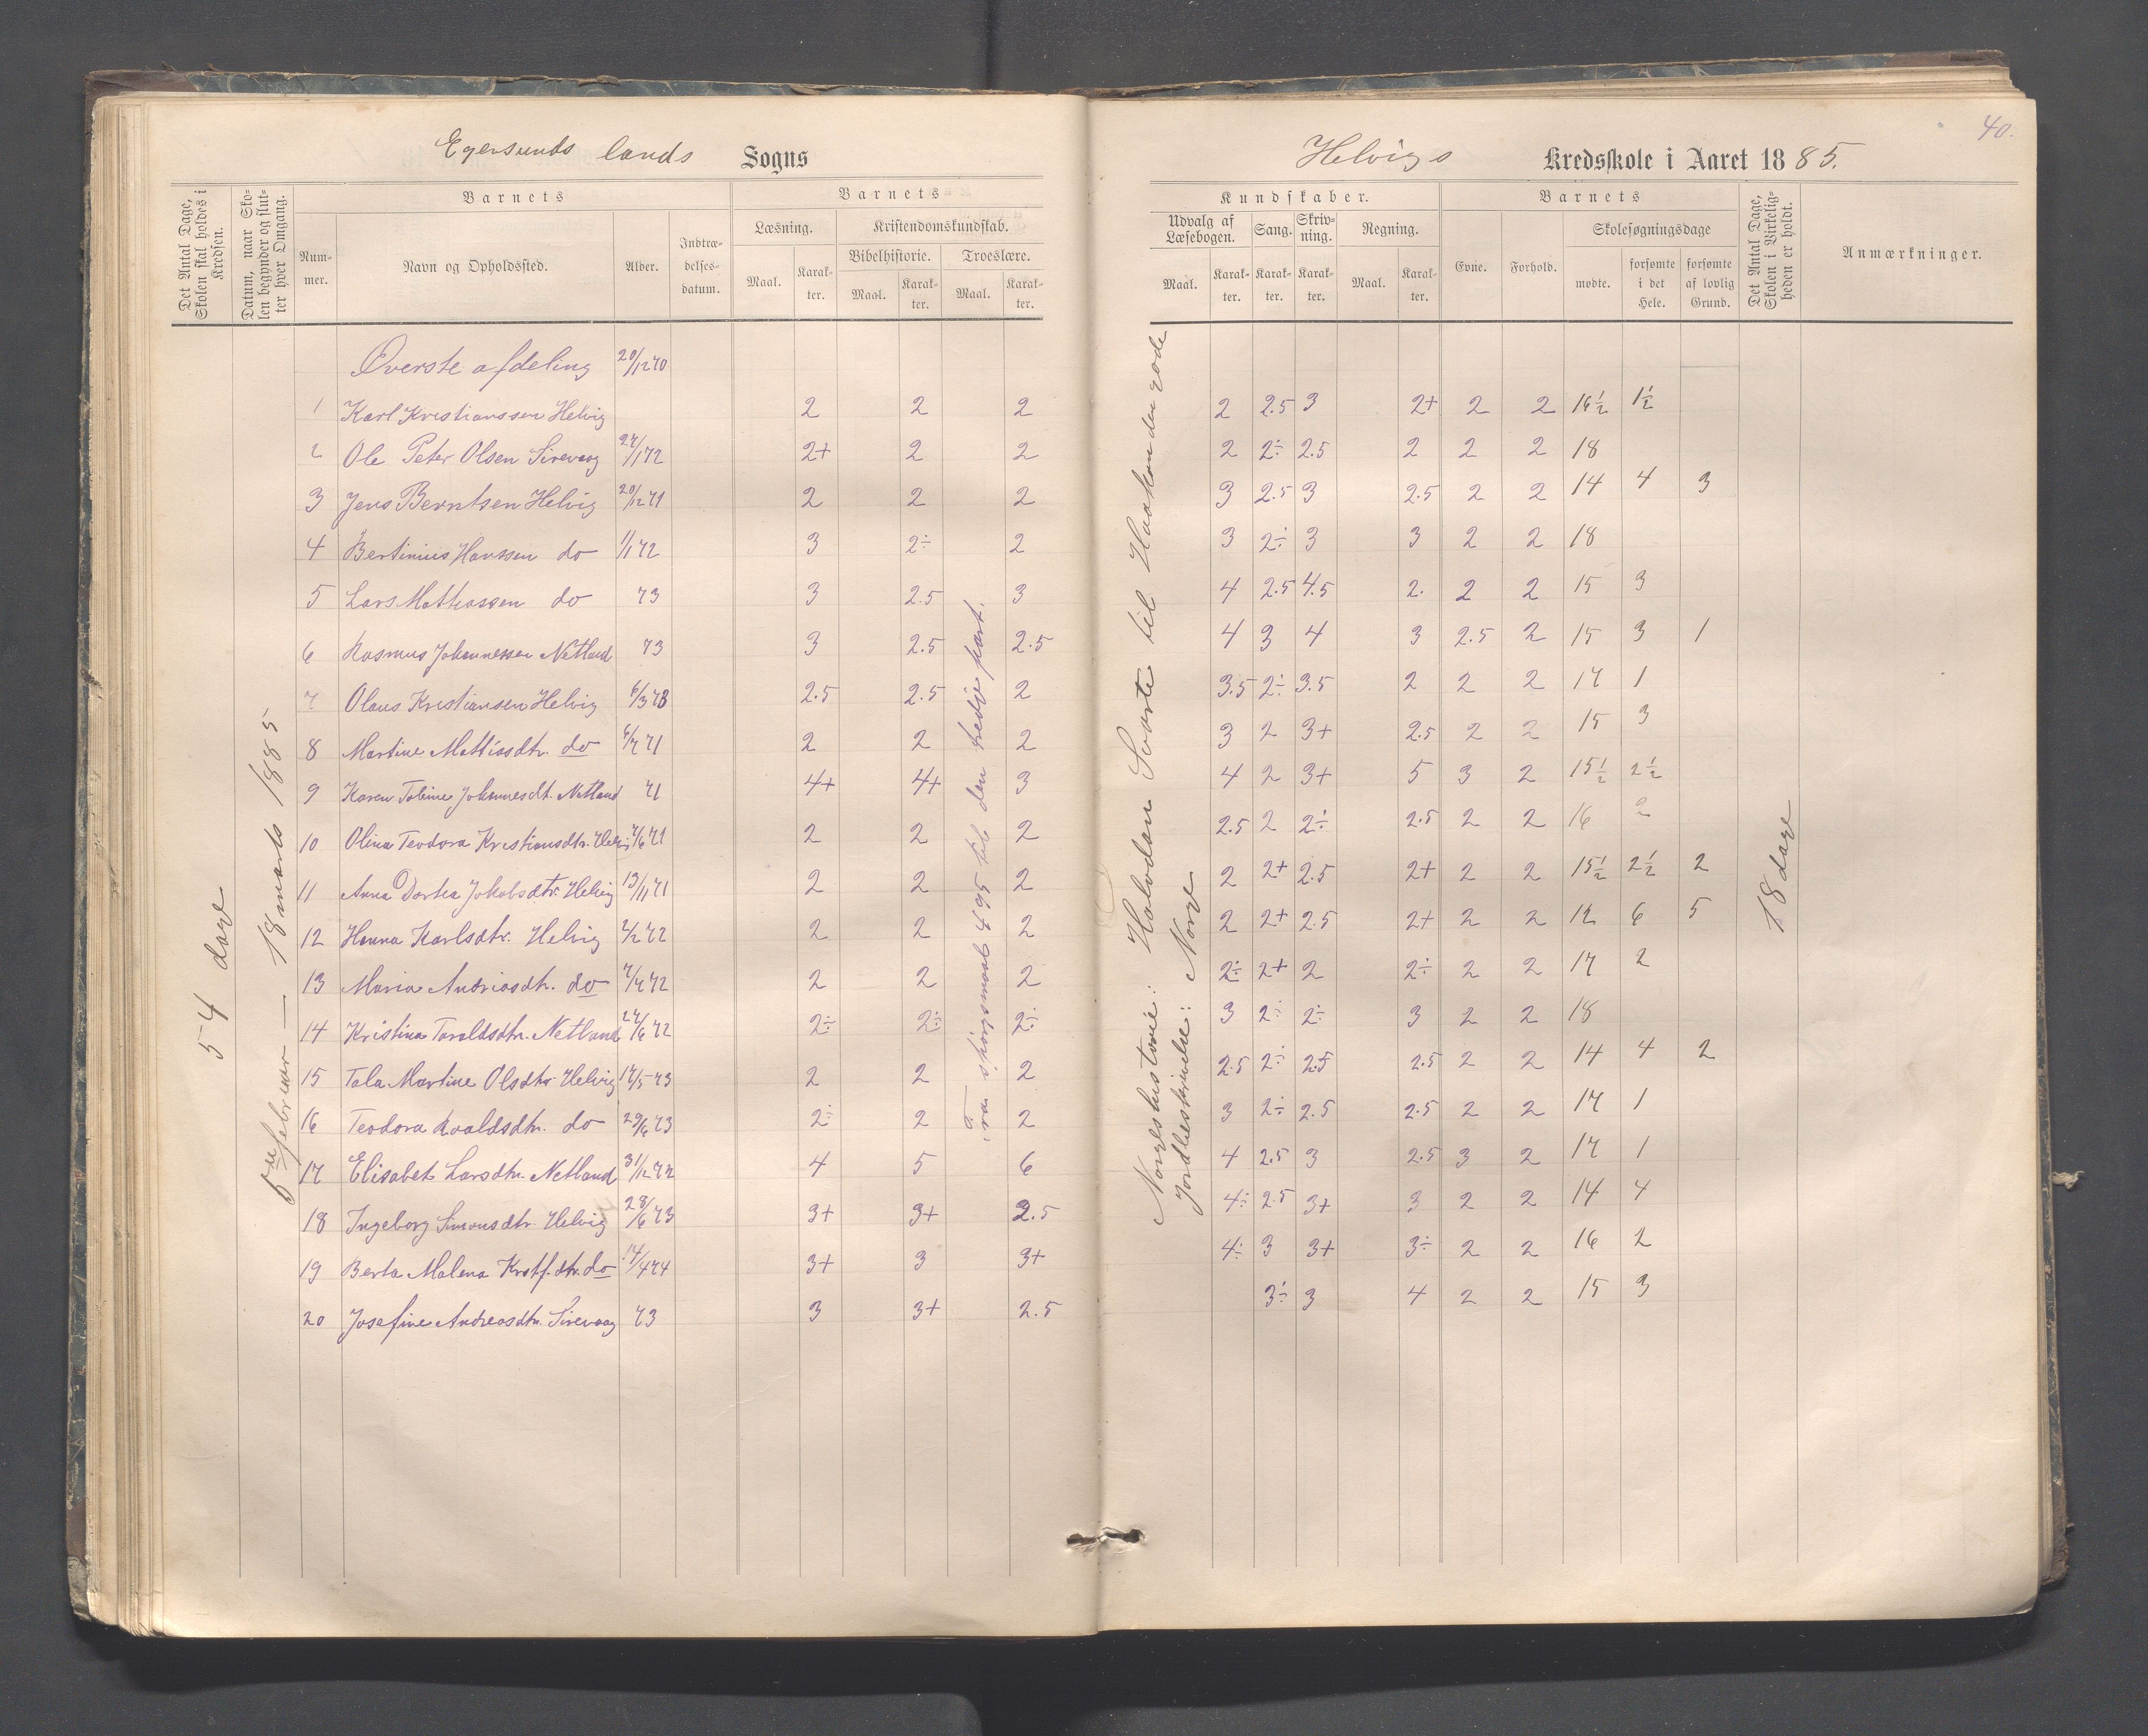 40.
Egersunds lands Sogns
Helvigs Kredsskole i Aaret 1885.
Det Antal Dage, Skolen skal holdes i Kredsen.
Datum, naar Skolen begynder og slutter hver Omgang.
Barnets
Nummer.
Navn og Opholdssted.
Alder.
Indtrædelsesdatum.
Barnets
Læsning.
Maal.
Karakter.
Kristendomskundskab.
Bibelhistorie.
Maal.
Karakter.
Troeslære.
Maal.
Karakter.
Kundskaber.
Udvalg af Læsebogen.
Maal.
Karakter.
Sang.
Karakter.
Skrivning.
Karakter.
Regning.
Maal.
Karakter.
Barnets
Evne.
Forhold.
Skolesøgningsdage
mødte.
forsømte i det Hele.
forsømte af lovlig Grund.
Det Antal Dage, Skolen i Virkeligheden er holdt.
Anmærkninger.
54 dage
5te februar — 18 marts 1885
Fra spørgsmaal 495 til den tredje part.
Norgeshistorie: Halvdan Svarte til Haakon den gode
Jordbeskrivelse: Norge
18 dage
Øverste afdeling 20/12 70
1 Karl Kristianssen Helvig 2 2 2 2 2.5 3 2+ 2 2 16½ 1½
2 Ole Peter Olsen Sirevaag 27/1 72 2+ 2 2 2 2÷ 2.5 2 2 2 18
3 Jens Berntsen Helvig 20/12 71 2 2 2 3 2.5 3 2.5 2 2 14 4 3
4 Bertinius Hanssen do 1/1 72 3 2÷ 2 3 2÷ 3 3 2 2 18
5 Lars Mathiassen do 73 3 2.5 3 4 2.5 4.5 2. 2 2 15 3
6 Rasmus Johannessen Netland 73 3 2.5 2.5 4 3 4 3 2.5 2 15 3 1
7 Olaus Kristiansen Helvig 6/3 73 2.5 2.5 2 3.5 2÷ 3.5 2 2 2 17 1
8 Martine Mattiasdtr. do 6/7 71 2 2 2 3 2 3+ 2.5 2 2 15 3
9 Karen Tobine Johannesdt. Netland 71 4+ 4+ 3 4 2 3+ 5 3 2 15½ 2½
10 Olina Teodora Kristiansdtr. Helvig 7/6 71 2 2 2 2.5 2 2÷ 2.5 2 2 16 2
11 Anna Dortea Jakobsdtr. Helvig 13/11 71 2 2 2 2 2+ 2.5 2+ 2 2 15½ 2½ 2
12 Hanna Karlsdtr. Helvig 2/2 72 2 2 2 2 2+ 2.5 2+ 2 2 12 6 5
13 Maria Andriasdtr. do 7/7 72 2 2 2 2÷ 2+ 2 2÷ 2 2 17 2
14 Kristina Taraldsdtr. Netland 27/6 72 2÷ 2÷ 2÷ 3 2÷ 2÷ 3 2 2 18
15 Tala Martine Olsdtr Helvig 17/5 73 2 2 2 2.5 2÷ 2.5 2.5 2 2 14 4 2
16 Teodora Roaldsdtr. do 29/6 73 2÷ 2 2 3 2÷ 2.5 2.5 2 2 17 1
17 Elisabet Larsdtr. Netland 31/12 72 4 5 6 4 2.5 3 2.5 3 2 17 1
18 Ingeborg Simonsdtr. Helvig 28/6 73 3+ 3+ 2.5 4÷ 2.5 3+ 3 2 2 14 4
19 Berta Malena Krstf.dtr. do 17/4 74 3+ 3 3+ 4÷ 3 3+ 3÷ 2 2 16 2
20 Josefine Andreasdtr. Sirevaag 73 3 3+ 2.5 3÷ 3 4 2 2 15 3